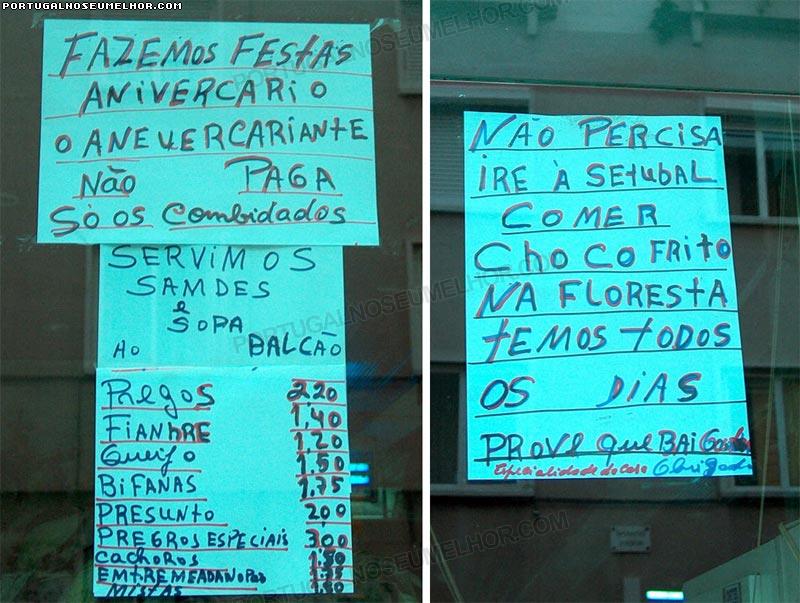 PORTUGALNOSEUMELHOR.COM
FAZEMOS FESTAS
ANIVERCARIO
O ANEVERCARIANTE
NÃO PAGA
SÓ OS COMBIDADOS
SERVIMOS
SAMDES
e
SOPA
AO BALCÃO
PREGOS 2,20
FIANBRE 1,40
Queijo 1,20
1,50
BIFANAS 1,75
PRESUNTO 2,00
PREGROS ESPECIAIS 3,00
CACHOROS 1,50
EMTREMEADA NO PÃO
MISTAS
NÃO PERCISA
IRE À SETUBAL
COMER
CHOCO FRITO
NA FLORESTA
TEMOS TODOS
OS DIAS
PROVE que BAI
Especialidade da Casa Obrigado